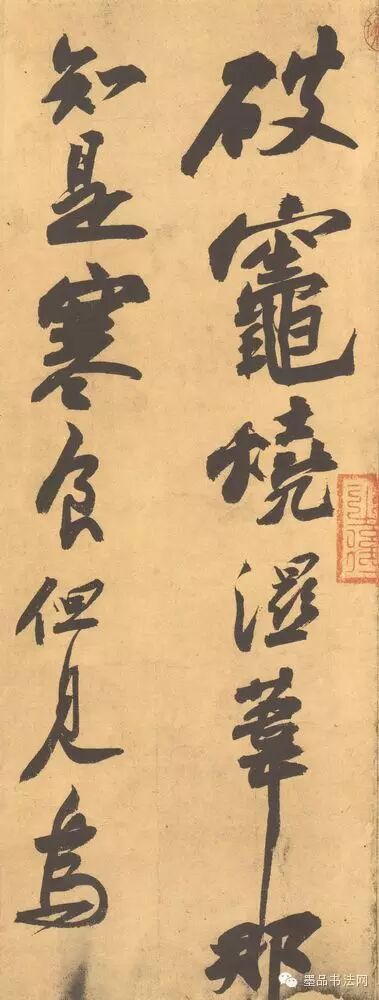 破竈燒濕葦那
知是寒食但見烏
墨品书法网